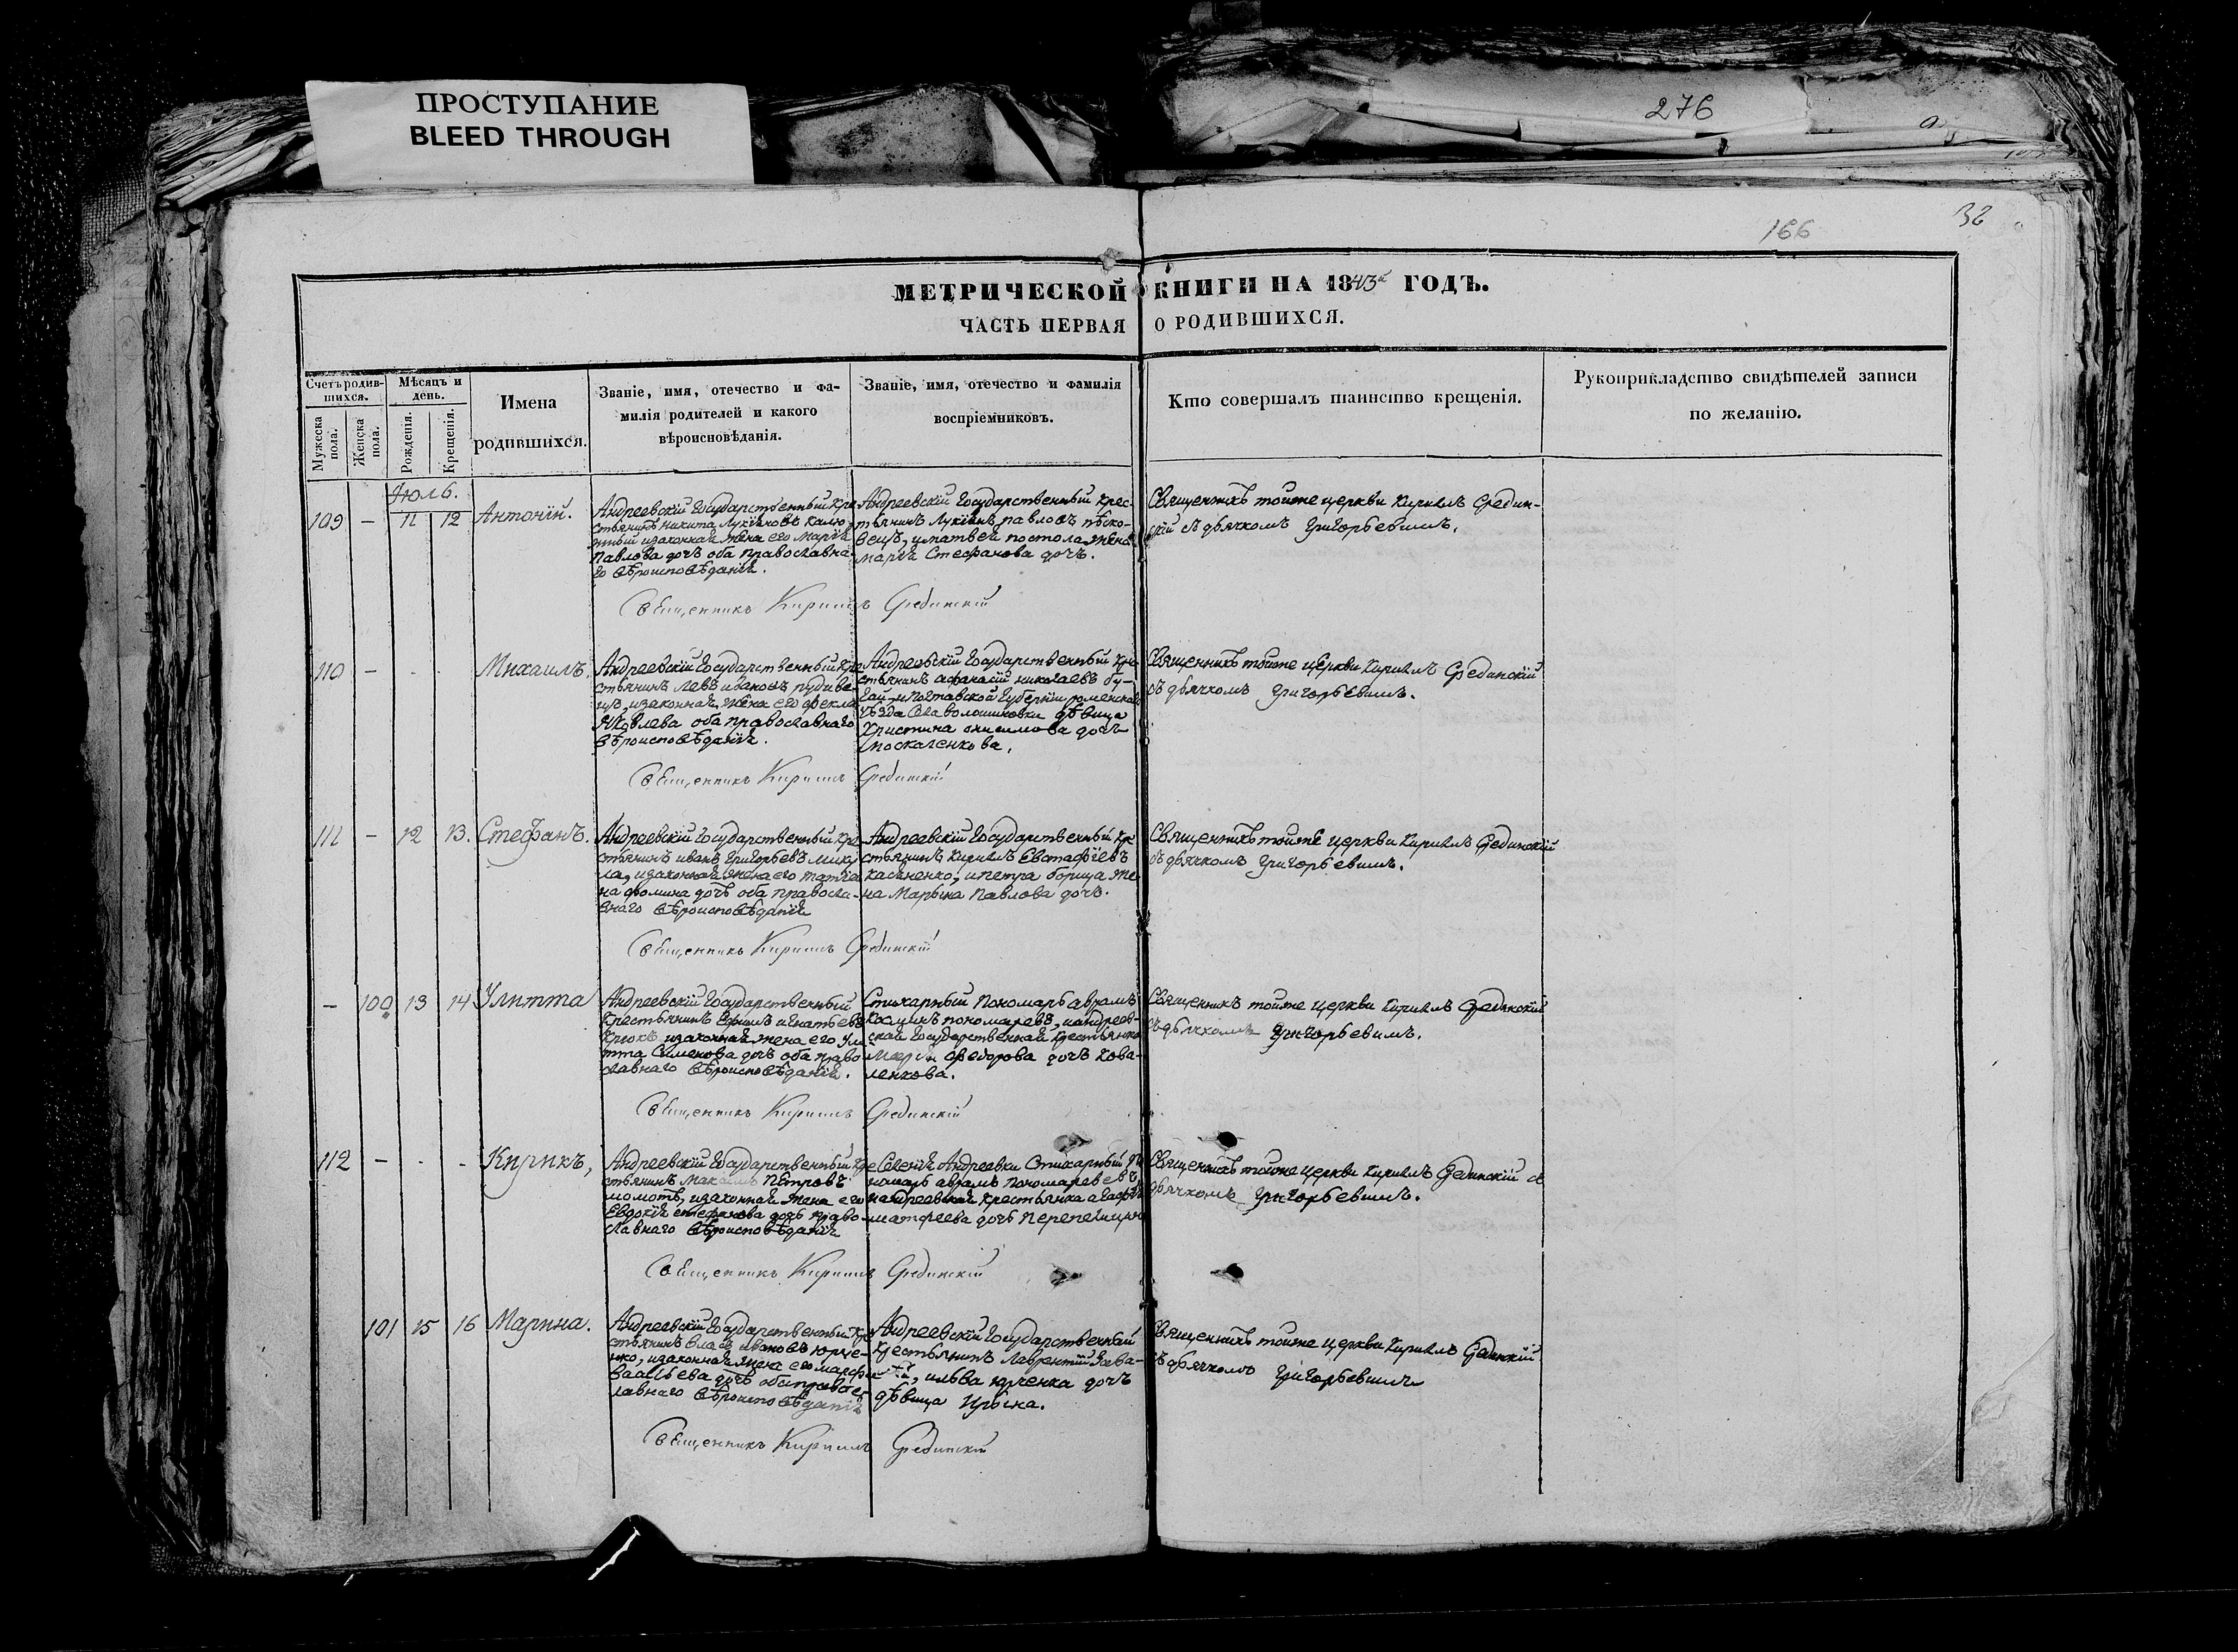 ПРОСТУПАНИЕ
BLEED THROUGH
276
166
32
МЕТРИЧЕСКОЙ КНИГИ НА 1843й ГОДЪ.
ЧАСТЬ ПЕРВАЯ О РОДИВШИХСЯ.
Счетъ родив-
шихся.
Мужеска
пола.
Женска
пола.
Мѣсяцъ и
день.
Рожденія.
Крещенія.
Имена
родившихся.
Званіе, имя, отечество и фа-
милія родителей и какого
вѣроисповѣданія.
Званіе, имя, отечество и фамилія
воспріемниковъ.
Кто совершалъ таинство крещенія.
Рукоприкладство свидѣтелей записи
по желанію.
Июль.
109 – 11 12 Антоній.
Андреевскій Государственный Кре
стьянинъ никита Лукіяновъ Калю
жный изаконная жена его Марія
Павлова дочь оба православна
го вѣроисповѣданія.
Андреевскій Государственный крес-
тьянинъ Лукіянъ павловъ пѣско-
вецъ, иматвея постола жена
марія Стефанова дочь.
Священникъ тойже церкви Кириллъ Средин-
скій съ дьячкомъ Григорьевимъ.
Священникъ Кириллъ Срединскій
110 – - - Михаилъ.
Андреевскій Государственный кре
стьянинъ Левъ ивановъ
изаконная жена его фекла
Яковлева оба православнаго
вѣроисповѣданія.
Андреевскій Государственный кре
стьянинъ афанасій николаевъ бу-
гай, иполтавской губерніи роменскаго
уѣзда Села волошиновки дѣвица
Христина онисимова дочь
москаленкова.
Священникъ тойже церкви Кириллъ Срединскій
съ дьячкомъ Григорьевимъ.
Священникъ Кириллъ Срединскій
111 – 12 13. Стефанъ.
Андреевскій Государственный Кре
стьянинъ иванъ Григорьевъ Мику
ла, изаконная жена его татія
на фомина дочь оба правосла-
внаго вѣроисповѣданія
Андреевскій Государственный кре
стьянинъ Кириллъ Евстафіевъ
Касяненко, ипетра борща же
на Марѣна Павлова дочь.
Священникъ тойже церкви Кириллъ Срединскій
съ дьячкомъ Григорьевимъ.
Священникъ Кириллъ Срединскій
– 100 13 14 Улитта
Андреевскій Государственный
Крестьянинъ Ефимъ игнатьевъ
Крюкъ изаконная жена его Ули
тта Семенова дочь оба право
славнаго вѣроисповѣданія.
Стихарный Пономарь аврамъ
Косминъ пономаревъ, иандреев-
ская Государственная Крестьянка
Марія Федорова дочь Кова-
ленкова.
Священникъ тойже церкви Кириллъ Срединскій
съ дьячкомъ Григорьевимъ.
Священникъ Кириллъ Срединскій
112 – - - Кирикъ,
Андреевскій Государственный Кре
стьянинъ Максимъ Петровъ
момотъ, изаконная жена его
Евдокія стефанова дочь право-
славнаго вѣроисповѣданія
Селенія Андреевки Стихарный по
номарь аврамъ пономаревъ
иандреевская крестьянка агафія
матфеева дочь
Священникъ тойже церкви Кириллъ Срединскій съ
дьячкомъ Григорьевимъ.
Священникъ Кириллъ Срединскій
101 15 16 Марина.
Андреевскій Государственный Кре
стьянинъ власъ ивановъ юрче-
нко, изаконная жена его марфа
васильева дочь оба правос
лавнаго вѣроисповѣданія
Андреевскій Государственный
Крестьянинъ Лаврентій
ильва юрченка дочь
дѣвица Ирына.
Священникъ тойже церкви Кириллъ Срединскій
съ дьячкомъ Григорьевимъ
Священникъ Кириллъ Срединскій